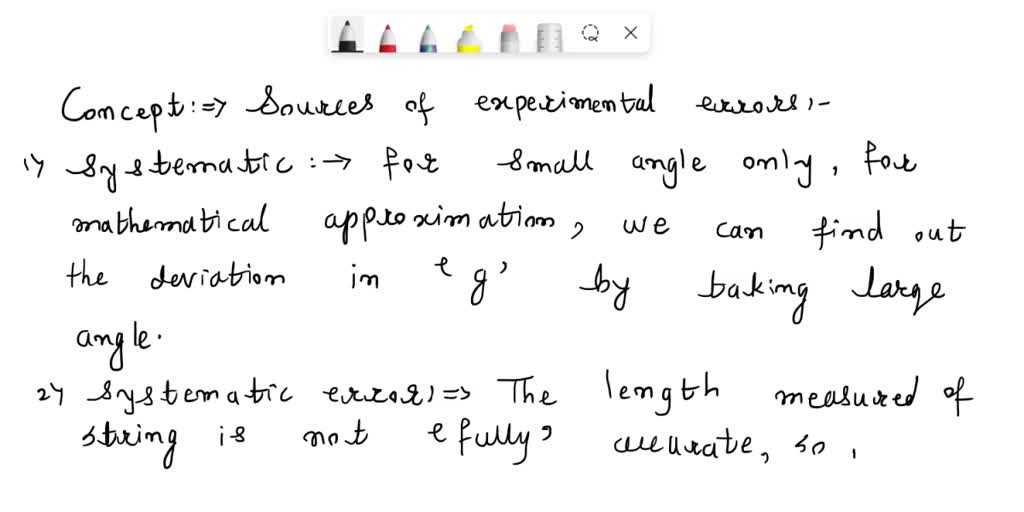 Concept :=> Sources of experimental errors :-
1) Systematic :→ for small angle only, for
mathematical approximation, we can find out
the deviation in 'g' by baking large
angle.
2) Systematic error :=> The length measured of
string is not 'fully' accurate, so ,